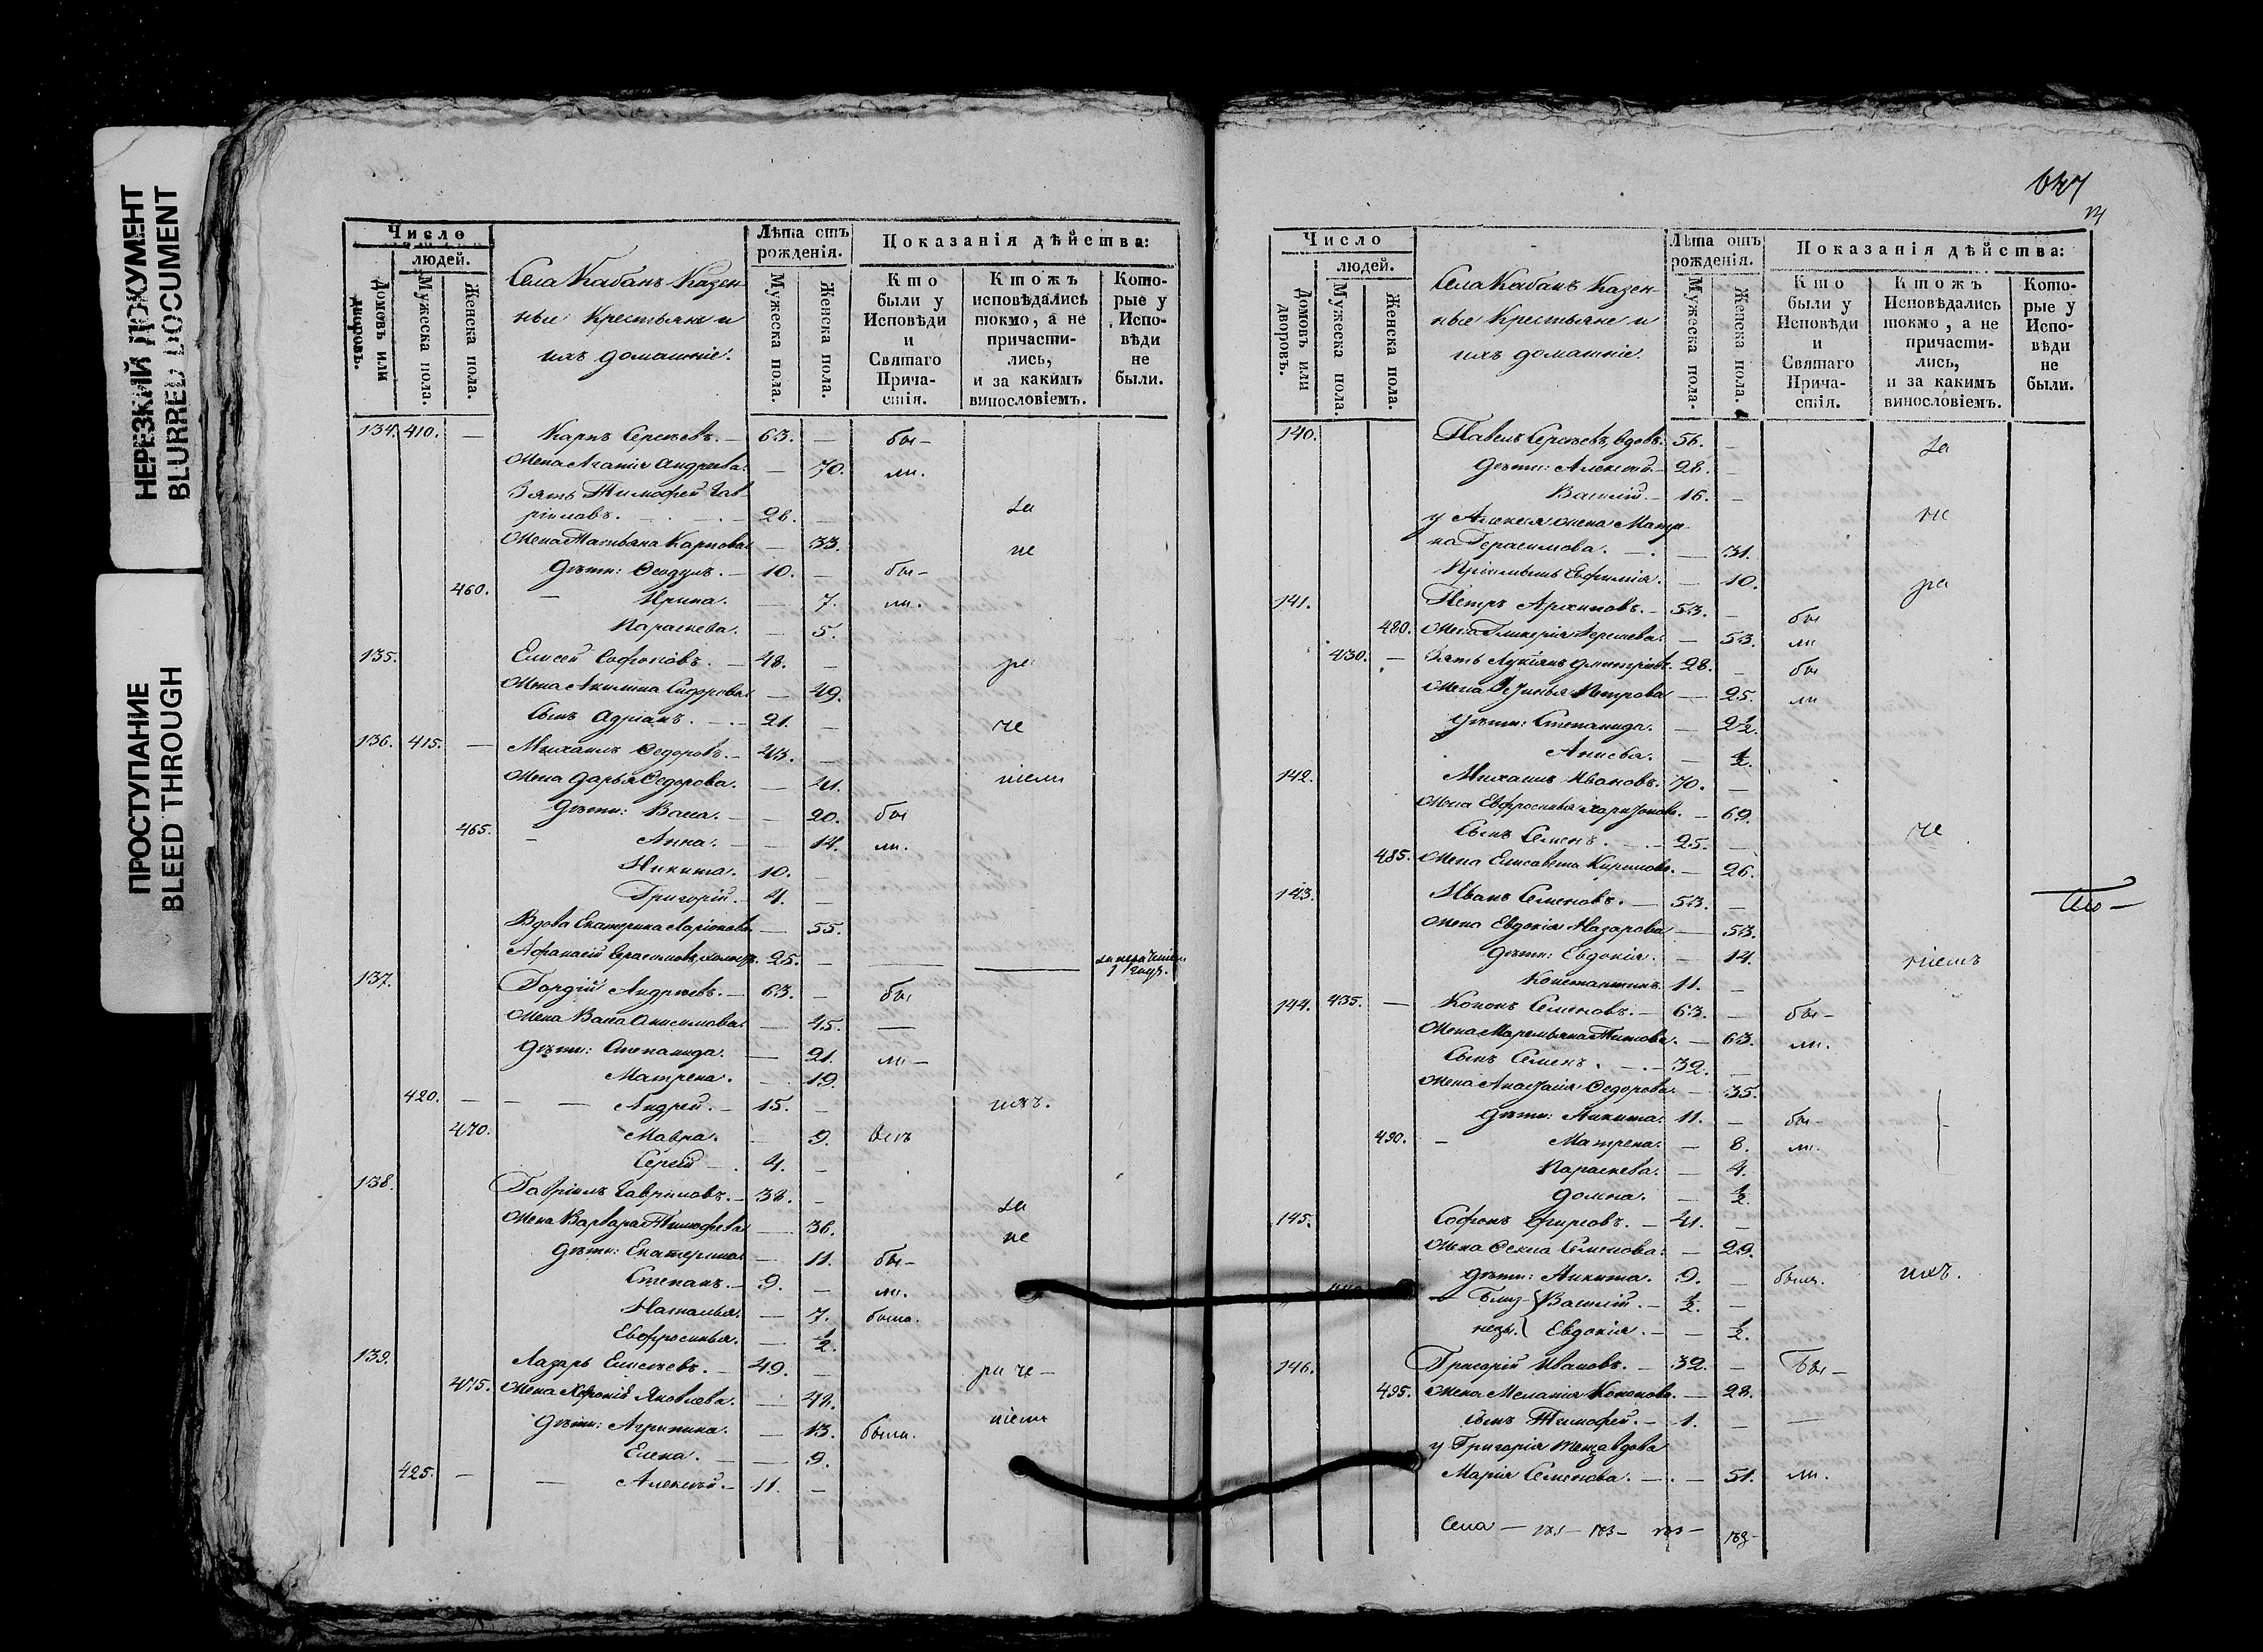 НЕРЕЗКИЙ ДОКУМЕНТ
BLURRED DOCUMENT
ПРОСТУПАНИЕ
BLEED THROUGH
Число
людей.
Домовъ или дворовъ.
Мужеска пола.
Женска пола.
Села Кабанъ Казен-
ные Крестьяне и
ихъ домашніе.
Лѣта отъ рожденія.
Мужеска пола.
Женска пола.
Показанія дѣйства:
Кто были у Исповѣди и Святаго Прича-стія.
Ктожъ исповѣдались токмо, а не причасти-лись, и за какимъ винословіемъ.
Кото-рые у Испо-вѣди не были.
134. 410. — Карпъ Сергѣевъ. — 63. — бы-
Жена Агапія Андреева. — 70. ли.
Зять Тимофей Гав-
ріиловъ. 28. — за
Жена Татьяна Карпова. — 33. не
Дѣти: Ѳеодулъ. — 10. — бы-
460. — Ирина. — 7. ли.
Параскева. — 5.
135. Елисей Софоновъ. — 48. — ра
Жена Акилина Сидорова. — 49.
Сынъ Адріанъ. — 21. — че
136. 415. — Михаилъ Ѳедоровъ. — 43. —
Жена Дарья Ѳедорова. — 41. ніемъ
Дѣти: Васса. — 20. бы
465. — Анна. — 14. ли.
Никита. 10. —
Григорій. 4. —
Вдова Екатерина Ларіонова — 55.
Афанасій Герасимовъ, холостъ. 25. —
137. Гордій Андреевъ. — 63. — бы
Жена Васса Анисимова. — 45. —
Дѣти: Степанида. — 21. ли —
Матрена. — 19.
420. — — Андрей. — 15. — ихъ.
470. Мавра. — 9.
Сергій — 4. —
138. Гавріилъ Гавриловъ. — 38. — за
Жена Варвара Тимофеева — 36. не
Дѣти: Екатерина — 11. бы-
Степанъ. — 9. — ли.
Наталья. — 7. была.
Евфросинья. — ½
139. Лазарь Елисеевъ. — 49. — ра че —
475. Жена Хіонія Яковлева. — 48.
Дѣти: Агрипина. — 13. были. ніемъ
Елена. — 9.
425. — — Алексѣй. — 11. —
647
Число
людей.
Домовъ или дворовъ.
Мужеска пола.
Женска пола.
Села Кабанъ Казен-
ные Крестьяне и
ихъ домашніе.
Лѣта отъ рожденія.
Мужеска пола.
Женска пола.
Показанія дѣйства:
Кто были у Исповѣди и Святаго Прича-стія.
Ктожъ Исповѣдались токмо, а не причасти-лись, и за какимъ винословіемъ.
Кото-рые у Испо-вѣди не были.
140. Павелъ Сергѣевъ, вдовъ. 56. — за
Дѣти: Алексѣй — 28. —
Василій. — 16. —
у Алексея жена Матре- не
на Герасимова. — 31.
Пріемышъ Евфимія. — 10. ра
141. Петръ Архиповъ. — 53. — бы
480. Жена Гликерія — 53. ли
430. — Зять Лукіянъ Дмитріевъ. 28. — бы
Жена Петрова — 25. ли
Дѣти: Степанида. — 2½.
Анисья. — ½.
142. Михаилъ Ивановъ. 70. —
Жена Евфросинья Харитонова. — 69.
Сынъ Семенъ. — 25. — че
485. Жена Елисавета Кирилова. — 26.
143. Иванъ Семеновъ. — 53. —
Жена Евдокія Назарова — 53.
Дѣти: Евдокія. — 14. ніемъ
Константинъ 11. —
144. 435. — Кононъ Семеновъ. — 63. — бы-
Жена Маремьяна Титова. — 63. ли.
Сынъ Семенъ. — 32. —
Жена Анастасія Ѳедорова — 35.
Дѣти: Никита. 11. — бы-
490. — Матрена. — 8. ли.
Параскева. — 4.
Домна. — ½.
145. Софонъ Фирсовъ. — 41. —
Жена Ѳекла Семенова. — 29.
Дѣти: Никита. 9. — былъ. ихъ.
— Близ- Василій. — ½. —
нецы. Евдокія. — ½.
146. Григорій Ивановъ. — 32. — Бы —
495. Жена Меланія Кононова. — 28.
сынъ Тимофей. — 1. — —
у Григорія теща вдова
Марія Семенова. — 51. ли.